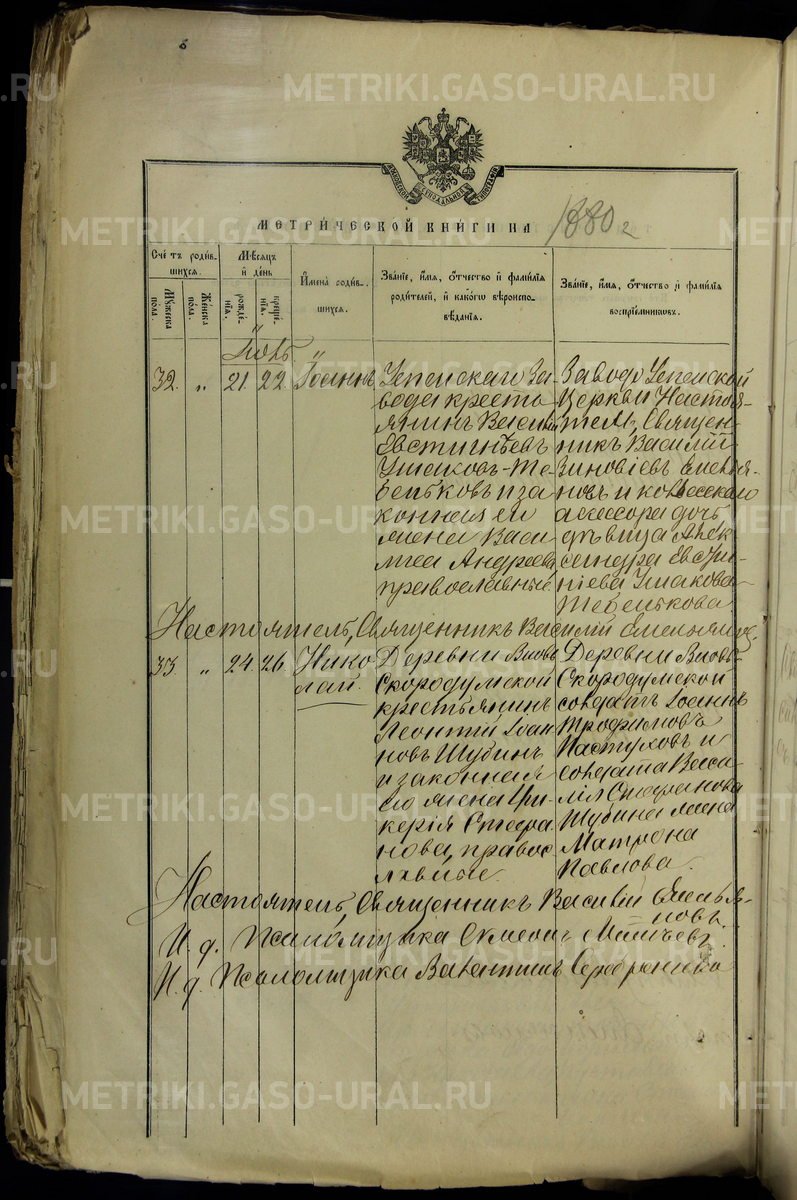 METRIKI.GASO-URAL.RU
МЕТРИ́ЧЕСКОЙ КНИ́ГИ НА 1880 г
Сче́тъ роди́вшихся.
Мꙋжеска пола.
Же́нска пола.
Мѣ́сяцъ и҆ де́нь
рожде́нїѧ.
креще́нїѧ.
И҆мена̀ роди́вшихся.
Зва́нїе, и҆́мѧ, ѻ҆́тчество и҆ фами́лїѧ роди́телей, и҆ како́гѡ вѣроисповѣ́данїѧ.
Зва́нїе, и҆́мѧ, ѻ҆́тчество и҆ фами́лїѧ воспрїе́мниковъ.
32. „ 21 22 Іоаннъ
За-
вода кресть-
янинъ Васил
Евстигнѣевъ
Ушаковъ-Те-
беньковъ и за
конная его
жена Васи
лиса Андреева
православные
Завода
Церкви Настоя-
тель, Священ-
никъ Василій
Зиновіевъ Емелья-
новъ и коллежскаго
асессора дочь
дѣвица Алек
сандра
Ушакова
Тебенькова.
Настоятель, Священникъ Василій Емельяновъ.
33. „ 24 26 Нико
лай.
Деревни Вновь
Скородумской
крестьянинъ
Леонтій Іоан
новъ Шубинъ
и законная
его жена Гли-
керія Стефа
нова, правос
лавные.
Деревни Вновь-
Скородумской
солдатъ Іоаннъ
Трофимовъ
Пастуховъ и
солдата Васи-
лія Стефанова
Шубина жена
Матрона
Павлова.
Настоятель, Священникъ Василій Емелья-
новъ.
И. д. Псаломщика
И. д. Псаломщика Валентинъ Серебренниковъ